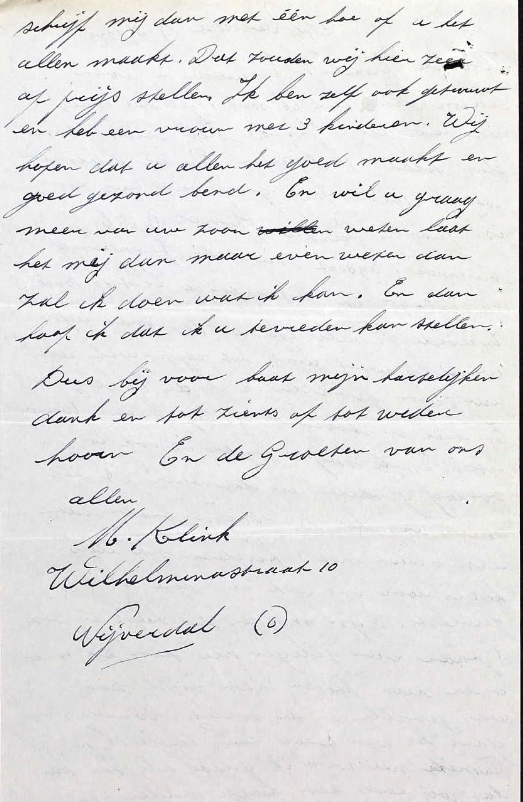 schrijf mij dan met één hoe of u het
allen maakt. Dat zouden wij hier zeer
op prijs stellen. Ik ben zelf ook getrouwt
en heb een vrouw met 3 kinderen. Wij
hopen dat u allen het goed maakt en
goed gezond bend. En wil u graag
meer van uw zoon willen weten laat
het mij dan maar even weten dan
zal ik doen wat ik kan. En dan
hoop ik dat ik u tevreden kan stellen.
Dus bij voor baat mijn hartelijken
dank en tot ziens of tot weder
hooren En de Groeten van ons
allen
M. Klink
Wilhelminastraat 10
Nijverdal (O)